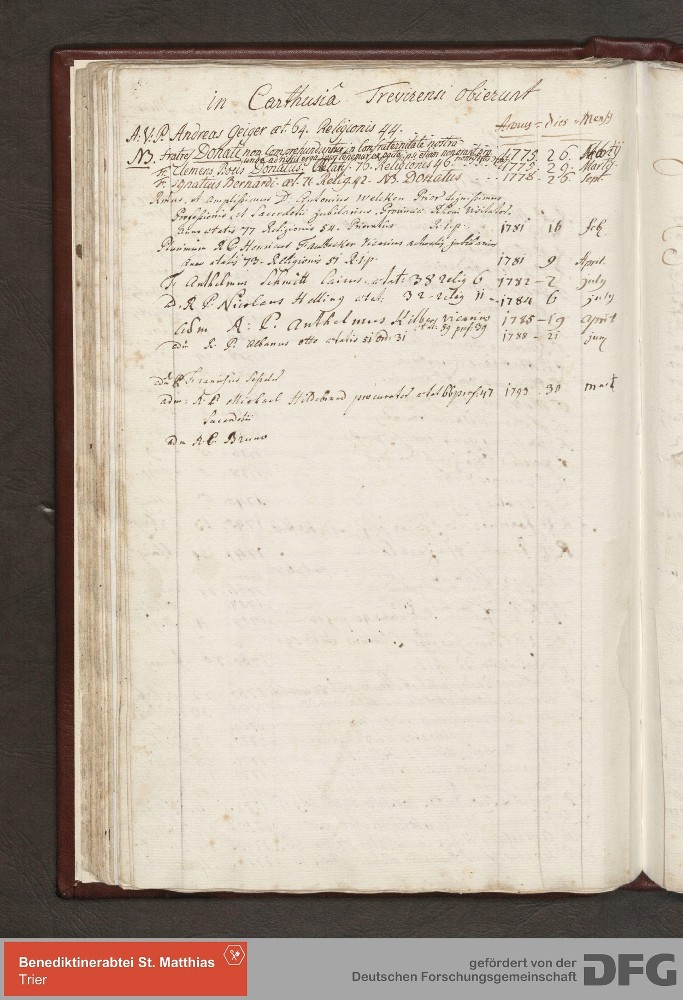 in Carthusiâ Trevirensi obierunt
Annus - Dies - Mensis
A. V. P. Andreas Geiger æt. 64. Religionis 44.
NB. fratres Donati non comprehenduntur in Confraternitate nostra
F. Clemens Donatus. Ætatis. 76. Religionis 46 1779. 29. Martij.
F. Ignatius Bernardi æt. 71 Relig. 42 - NB. Donatus - - 1778 - 26 Sept.
et Amplissimus D. Antonius Welcken Prior dignissimus
Professionis et Sacerdotij jubilarius, Provinciæ Rheni Visitator
anno ætatis 77 Religionis 54. R. i. p. 1781 16 feb.
Plurimum R. P. Henricus Vicarius jubilarius
Anno ætatis 73 - Religionis 51 R. i. p. 1781 9 April.
F. Anthelmus Schmitt laicus ætat: 38 relig 6 1782 - 2 july
ad. R. P. Nicolaus Helling ætat. 32 - relig 11 - 1784 6 july
adm R: P. Anthelmus Kilber vicarius 1785 - 19 april
æt. 59 prof. 39
adm R. P. Urbanus otto ætatis 51 31 1788 - 21 junij
adm R. P. Franciscus
adm: R. P. Michael Hildebrand procurator ætat 66 prof: 47 1793 . 30 mart
Sacerdotii
adm R. P. Bruno
Benediktinerabtei St. Matthias
Trier
gefördert von der
Deutschen Forschungsgemeinschaft
DFG